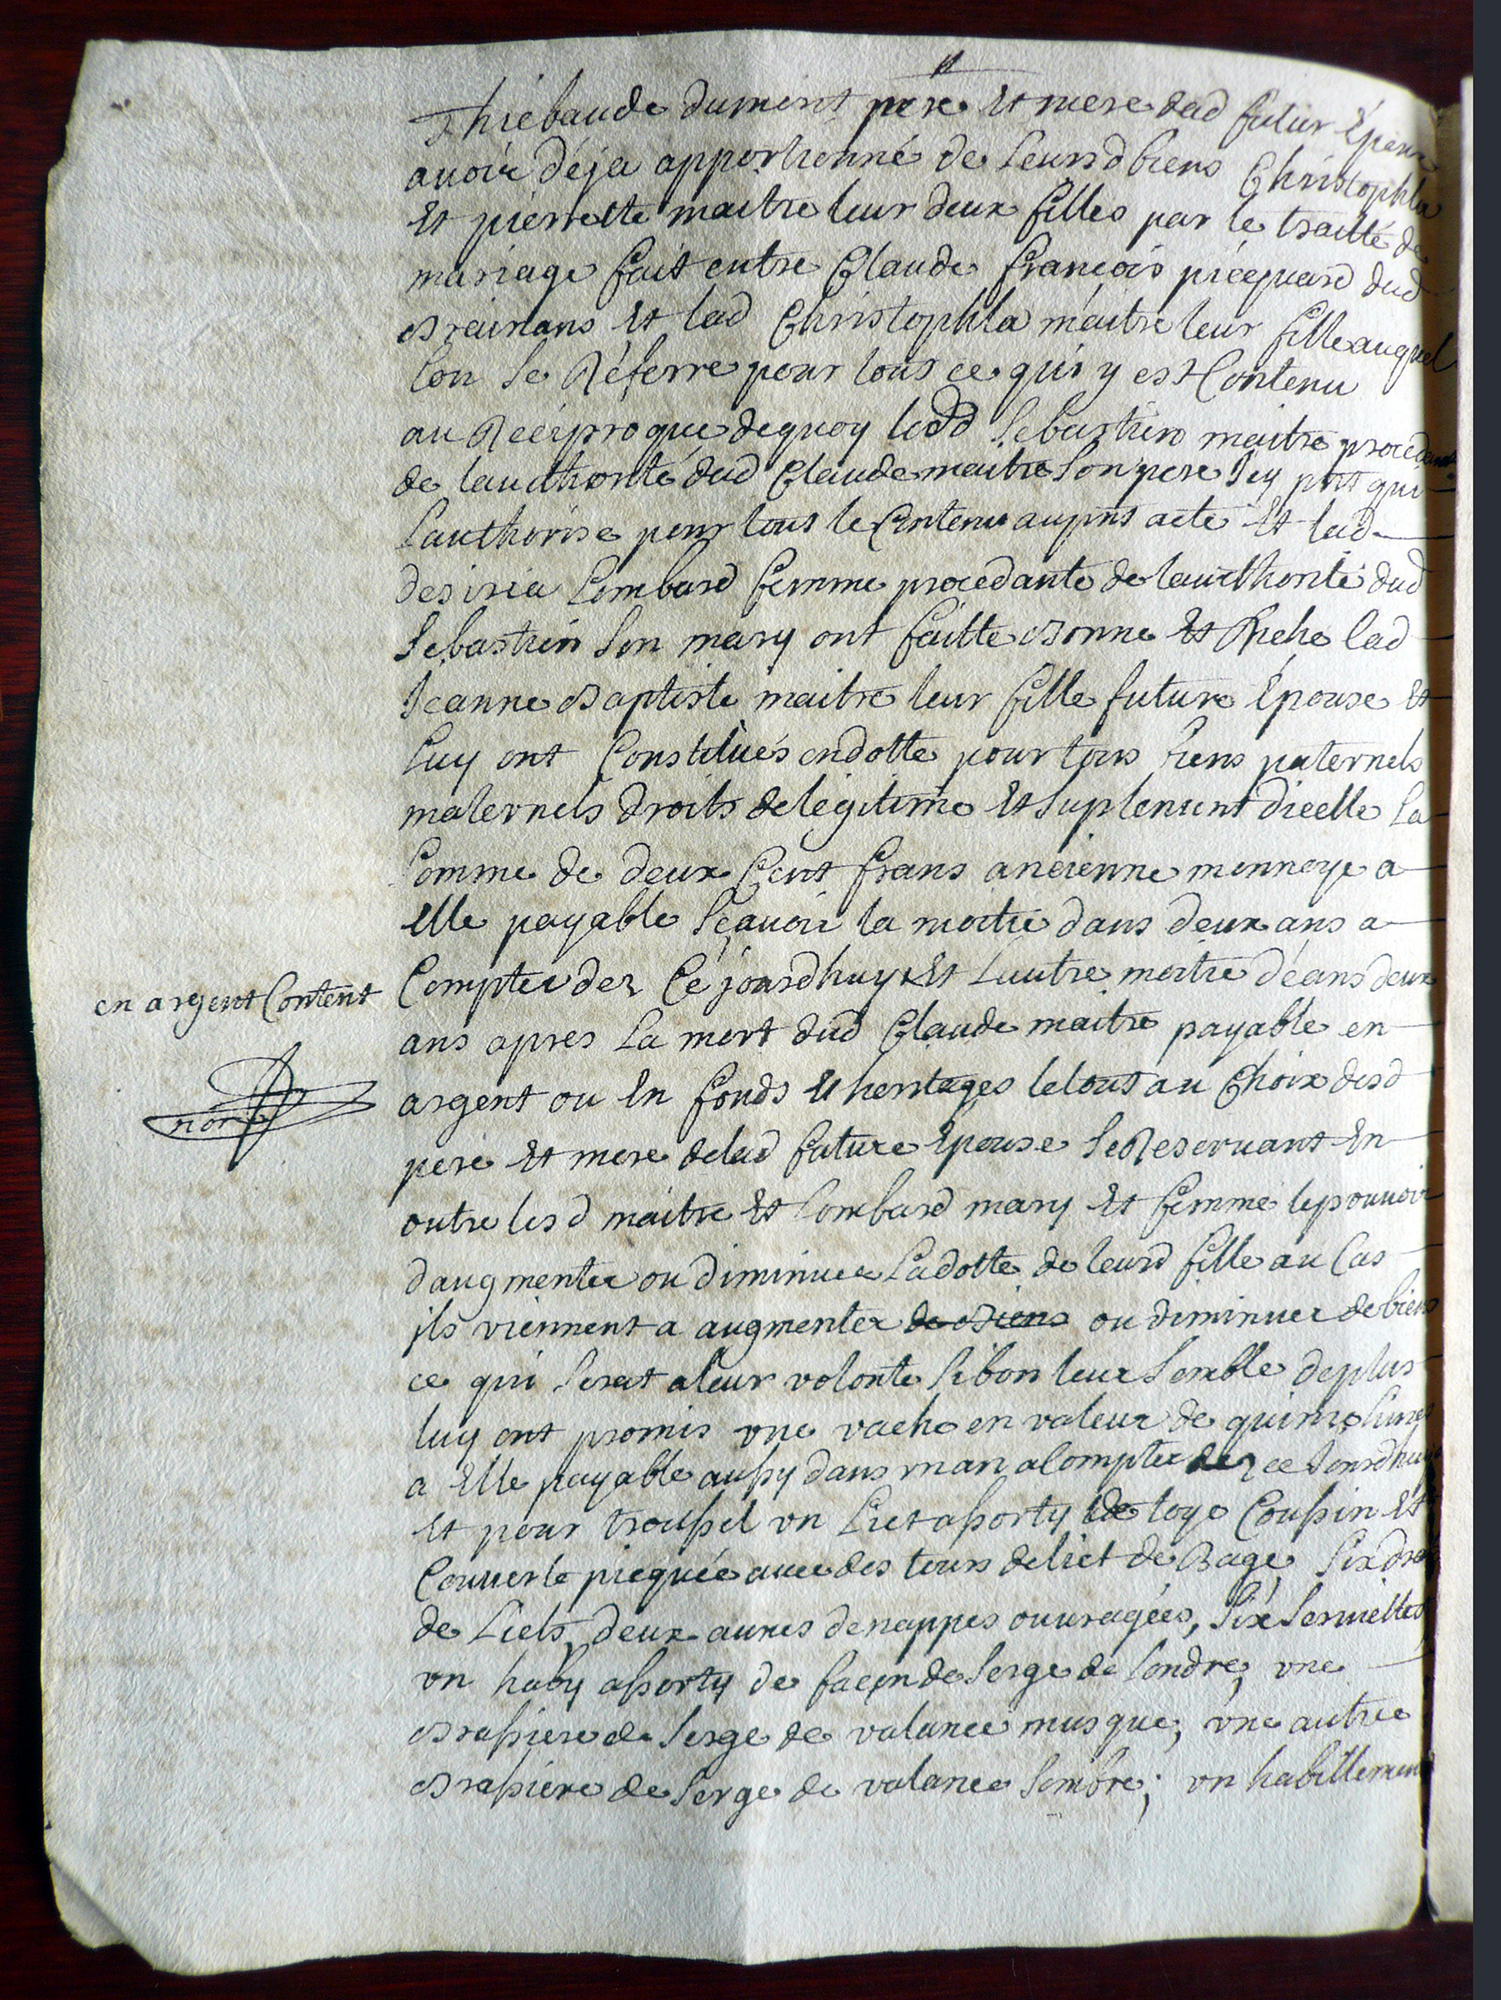 Thiebaude dumont pere et mere dud futur Epoux
avoir déja apportionné de leursd biens Christophla
Et pierrette maitre leur deux filles par le traitté de
mariage fait entre Claude françois picquard dud
Brainans et lad Christophla maitre leur fille auquel
lon se Réferre pour tous ce qui y est Contenu
au Reciproque dequoy led Sebastien maitre procedant
de lauthorité dud Claude maitre son pere Icy pnt qui
lauthorise pour tous le Contenu aupnt acte et lad
desiria Lombard femme procedante de lauthorité dud
Sebastien son mary ont faitte Bonne et Riche lad
Jeanne Baptiste maitre leur fille future Epouse et
Luy ont Constitués endotte pour tous biens paternels
maternels droits delegitime et suplement dicelle La
somme de deux Cent frans ancienne monnoye a
elle payable sçavoir la moitié dans deux ans a
Compter dez Cé jourdhuy et Lautre moitié déans deux
en argent Content
ans apres La mort dud Claude maitre payable en
argent ou en fonds et heritages letout au Choix desd
pere et mere delad future Epouse se Reservant en
outre lesd maitre et Lombard mary et femme lepouvoir
daugmenter ou diminuer Ladotte de leurd fille au Cas
ils viennent a augmenter de Biens ou diminuer de biens
ce qui serat aleur volonté sibon leur semble deplus
luy ont promis une vache en valeur de quinze livres
a elle payable aussy dans un an a Compter dez ce Jourdhuy
et pour troussel un Lict assorty de toye Coussin et
Couverte picquée avec des tours delict de Bage six draps
de Licts, deux aunes denappes ouvragées, six serviettes,
un haby assorty de façon de serge de Londre, une
Brassiere de serge de valance musque, une autre
Brassiere de serge de valance sombre; un habillement